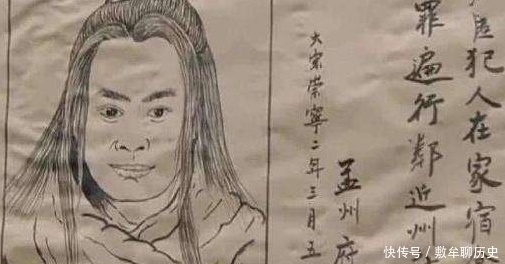 匿犯人在家宿
罪遍行鄰近州
孟州府
大宋崇寧二年三月五
快传号 / 敷牟聊历史